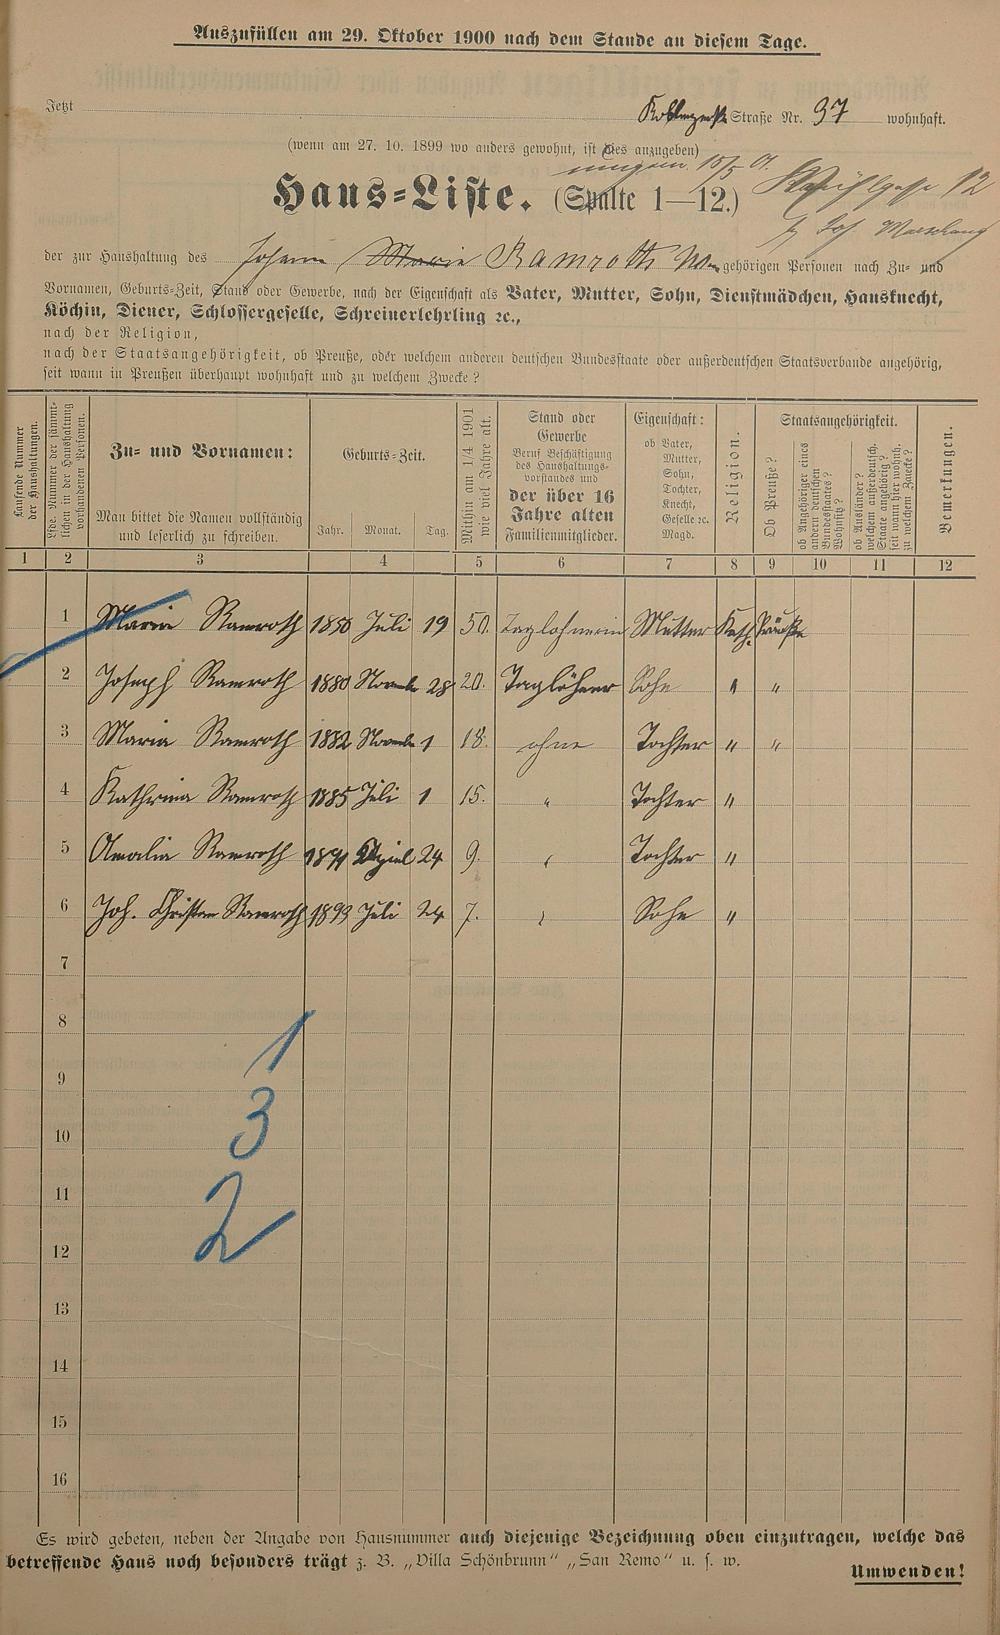 Auszufüllen am 29. Oktober 1900 nach dem Stande an diesem Tage.
Jetzt Koblenzerstr. Straße Nr. 37 wohnhaft.
(wenn am 27. 10. 1899 wo anders gewohnt, ist dies anzugeben)
15/5 01.
Haus-Liste. (Spalte 1—12.)
12
Jos.
der zur Haushaltung des Johann Marie Ramroth Ww. gehörigen Personen nach Zu- und
Vornamen, Geburts-Zeit, Stand oder Gewerbe, nach der Eigenschaft als Vater, Mutter, Sohn, Dienstmädchen, Hausknecht,
Köchin, Diener, Schlossergeselle, Schreinerlehrling ꝛc.,
nach der Religion,
nach der Staatsangehörigkeit, ob Preuße, oder welchem anderen deutschen Bundesstaate oder außerdeutschen Staatsverbande angehörig,
seit wann in Preußen überhaupt wohnhaft und zu welchem Zwecke?
Laufende Nummer der Haushaltungen.
Lfde. Nummer der sämmtlichen in der Haushaltung vorhandenen Personen.
Zu- und Vornamen:
Man bittet die Namen vollständig
und leserlich zu schreiben.
Geburts-Zeit.
Jahr. Monat. Tag.
Mithin am 1/4 1901
wie viel Jahre alt.
Stand oder
Gewerbe
Beruf Beschäftigung
des Haushaltungs-
vorstandes und
der über 16
Jahre alten
Familienmitglieder.
Eigenschaft:
ob Vater,
Mutter,
Sohn,
Tochter,
Knecht,
Geselle ꝛc.
Magd.
Religion.
Staatsangehörigkeit.
Ob Preuße?
ob Angehöriger eines
andern deutschen
Bundesstaates?
Wohnsitz?
ob Ausländer?
welchem außerdeutsch.
Staate angehörig?
seit wann hier wohnh.
zu welchem Zwecke?
Bemerkungen.
1 2 3 4 5 6 7 8 9 10 11 12
1 Maria Ramroth 1850 Juli 19 50. Taglöhnerin Mutter Kath. Preuße
2 Joseph Ramroth 1880 Novemb. 28 20. Taglöhner Sohn " "
3 Maria Ramroth 1882 Novemb. 1 18. ohne Tochter " "
4 Kathrina Ramroth 1885 Juli 1 15. " Tochter "
5 Amalia Ramroth 1891 April 24 9. " Tochter "
6 Joh. Christian Ramroth 1893 Juli 24 7. " Sohn "
7
8
1
9
3
10
11
2
12
13
14
15
16
Es wird gebeten, neben der Angabe von Hausnummer auch diejenige Bezeichnung oben einzutragen, welche das
betreffende Haus noch besonders trägt z. B. „Villa Schönbrunn“ „San Remo“ u. s. w.
Umwenden!